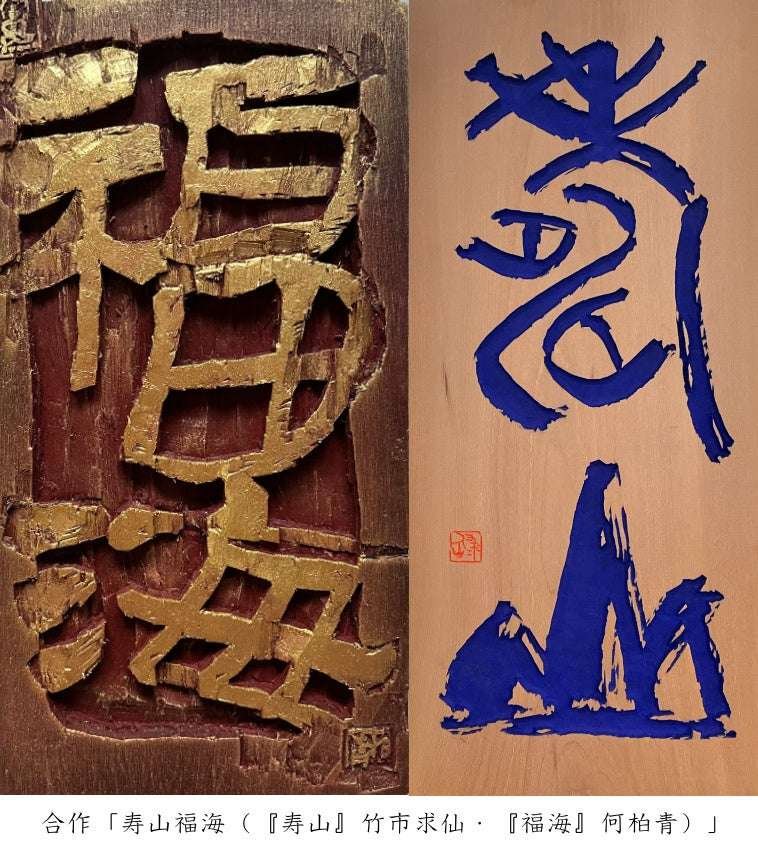 壽山
福海
合作「寿山福海(『寿山』竹市求仙・『福海』何柏青)」